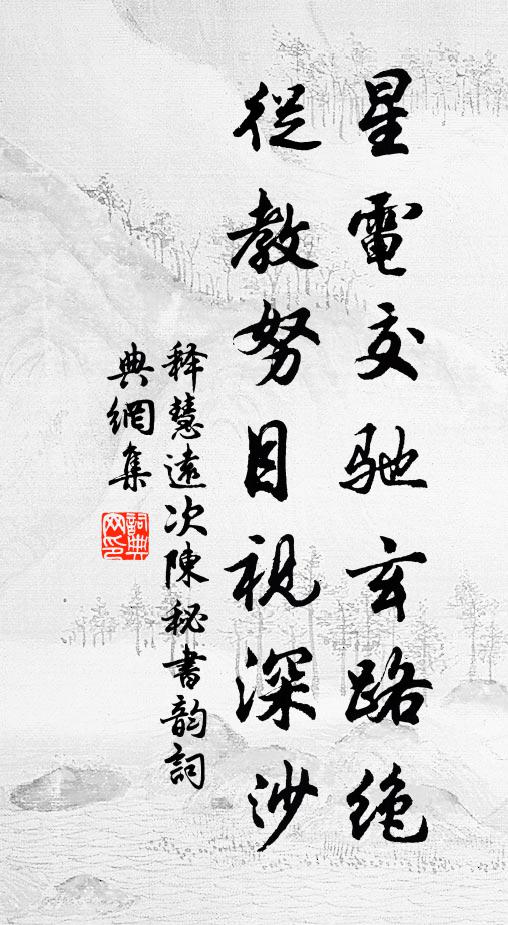 星電交馳玄路絶
從教努目視深沙
释慧遠次陳秘書韵詞
典網集
詞典
网印